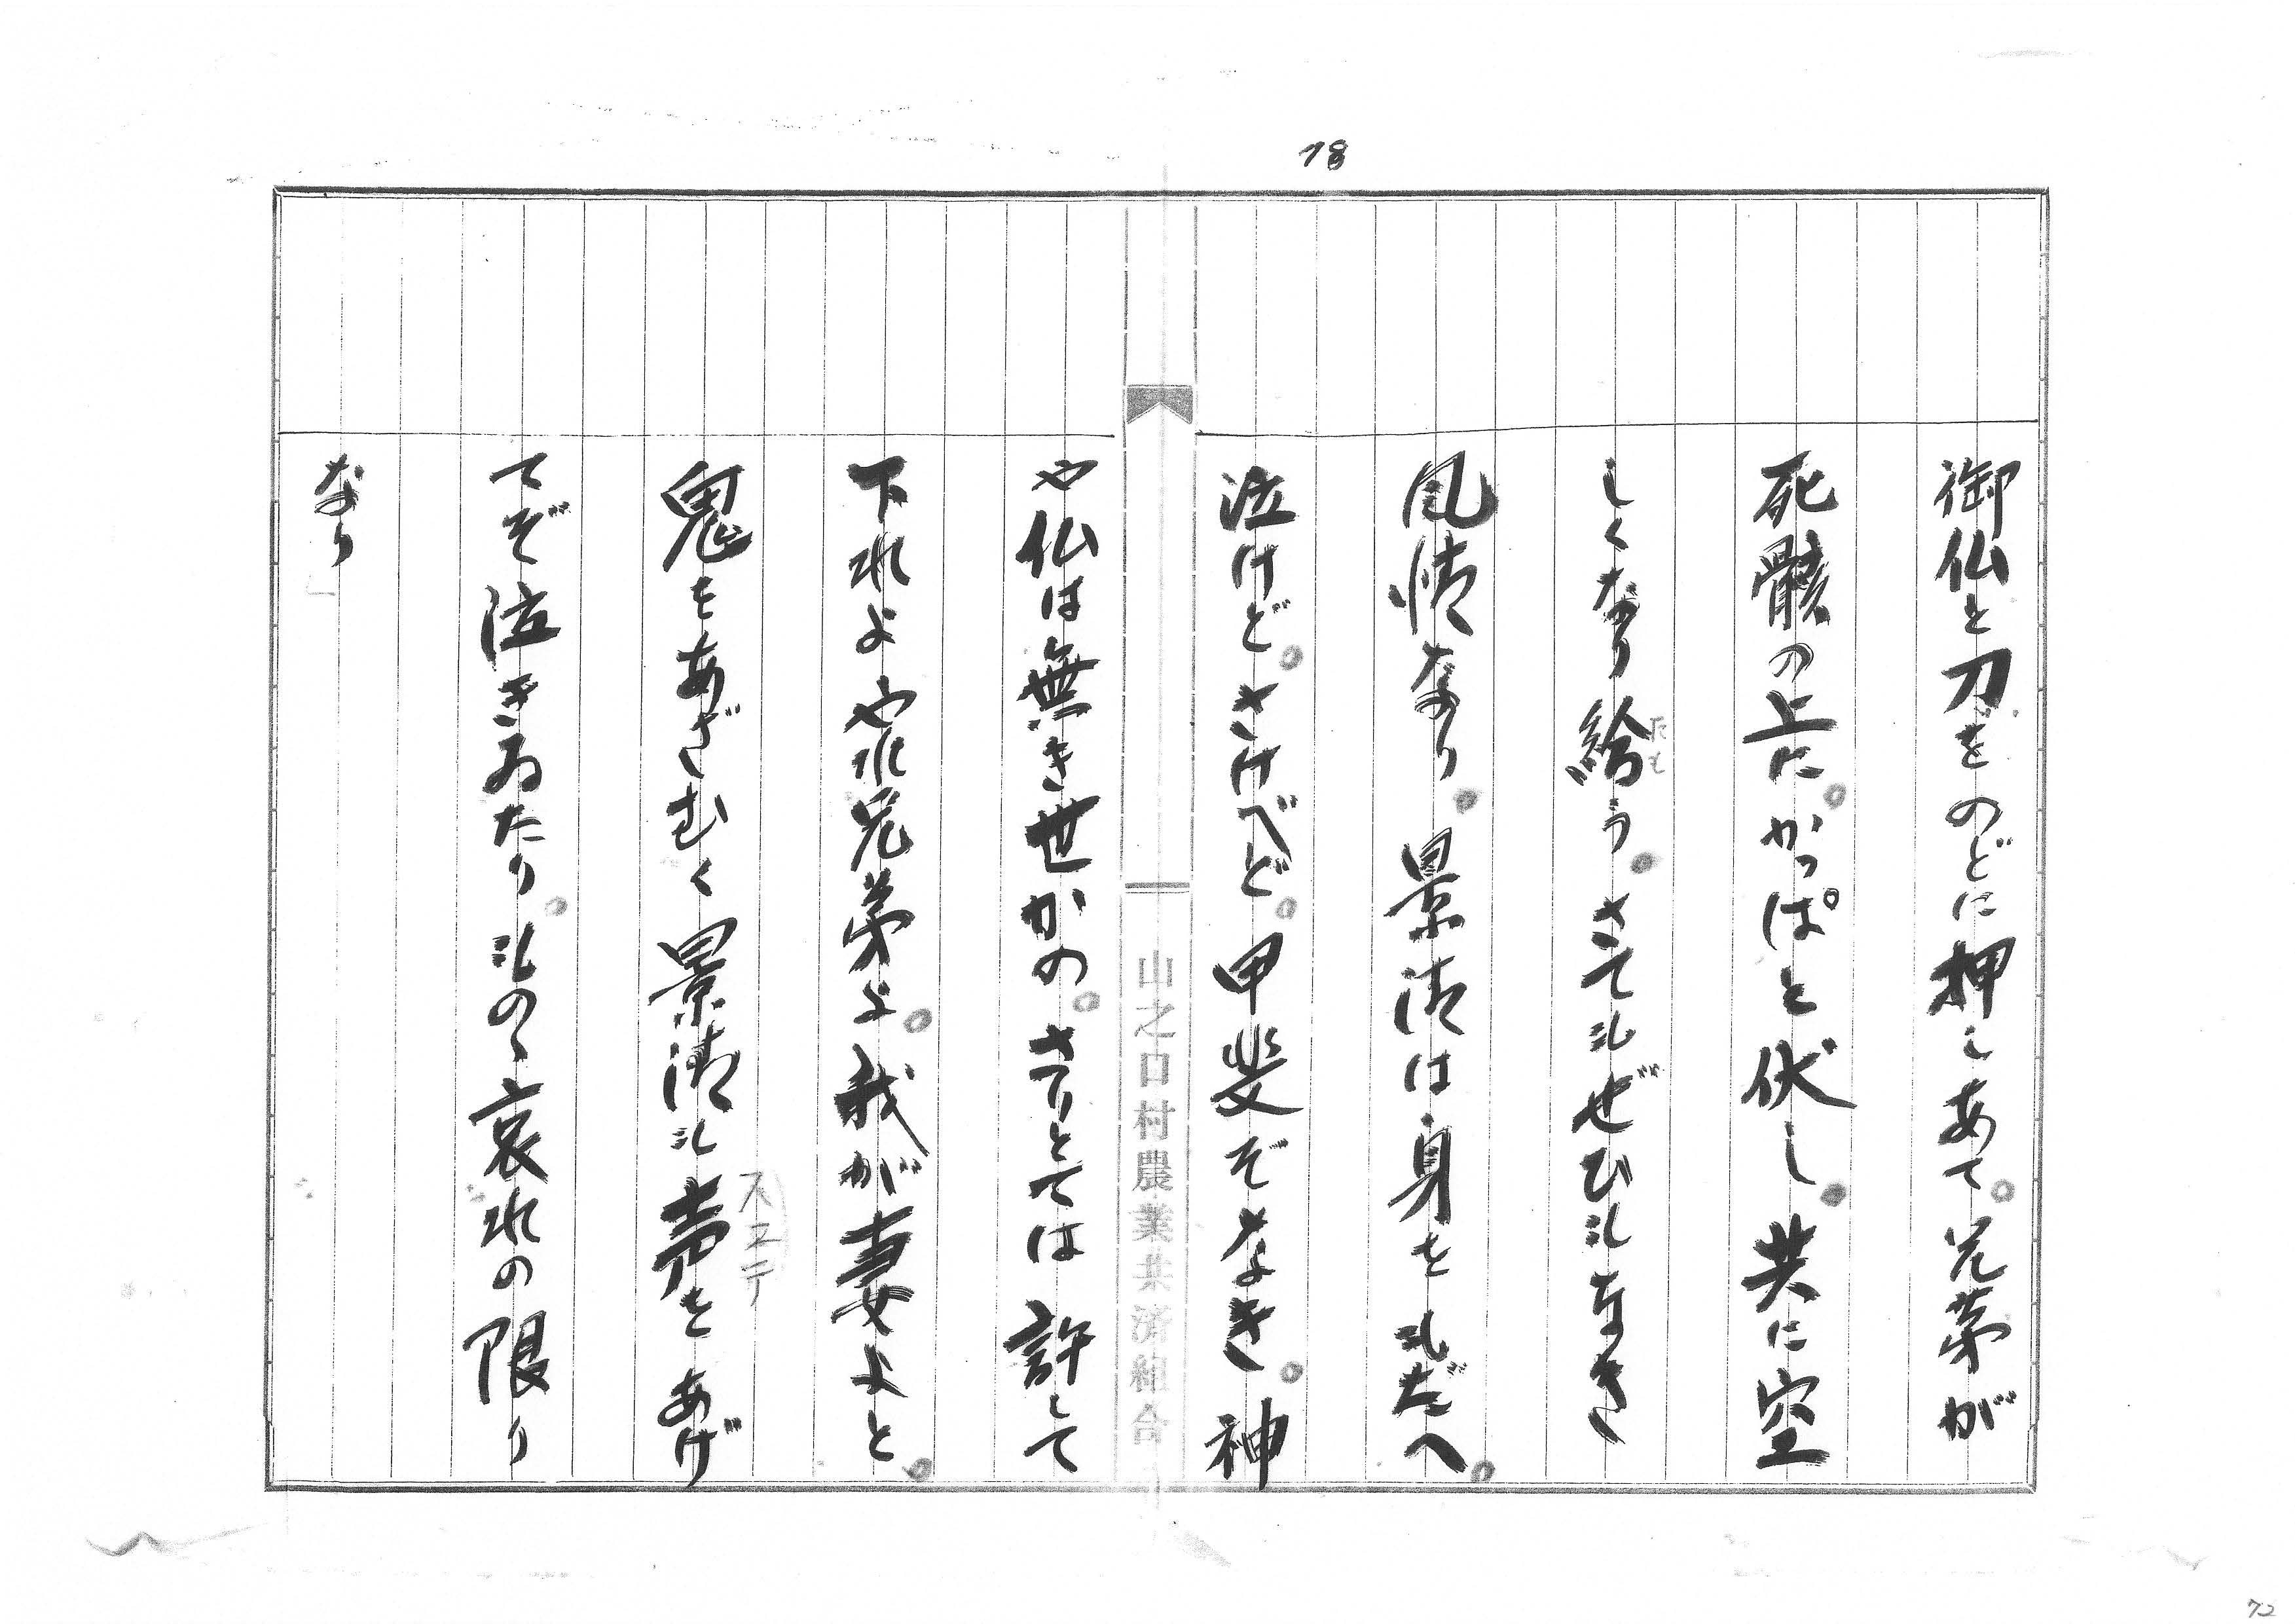 18
御仏と刀をのどに押しあて。兄弟が
死骸の上に。かっぱと伏し。共に空
しくなり給う。さてもぜひもなき
たも
風情なり。景清は身をもだへ。
泣けど。さけべど。甲斐ぞなき。神
山之口村農業共済組合
や仏は無き世かの。さりとては許して
下れよやれ兄弟よ。我が妻よと。
鬼をあざむく景清も声をあげ
てぞ泣きゐたり。もの、哀れの限り
なり
72